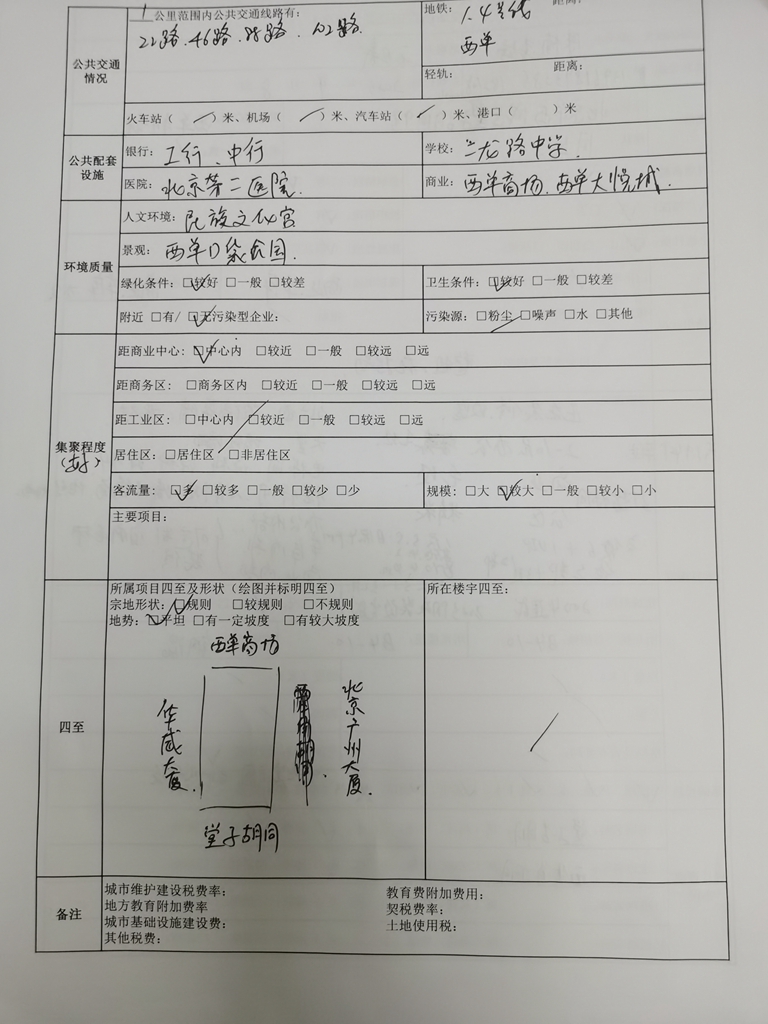 1公里范围内公共交通线路有:
地铁: 1.4号线 距离:
22路、46路、88路、102路
西单
公共交通情况
轻轨: 距离:
火车站( )米、机场( )米、汽车站( )米、港口( )米
公共配套设施
银行: 工行、中行
学校: 二龙路中学.
医院: 北京第二医院.
商业: 西单商场、西单大悦城.
环境质量
人文环境: 民族文化宫
景观: 西单口袋公园.
绿化条件: ☑较好 □一般 □较差
卫生条件: ☑较好 □一般 □较差
附近 □有/ ☑无污染型企业:
污染源: □粉尘 □噪声 □水 □其他
集聚程度
(好)
距商业中心: ☑中心内 □较近 □一般 □较远 □远
距商务区: □商务区内 □较近 □一般 □较远 □远
距工业区: □中心内 □较近 □一般 □较远 □远
居住区: □居住区 □非居住区
客流量: ☑多 □较多 □一般 □较少 □少
规模: □大 ☑较大 □一般 □较小 □小
主要项目:
四至
所属项目四至及形状(绘图并标明四至)
所在楼宇四至:
宗地形状: ☑规则 □较规则 □不规则
地势: ☑平坦 □有一定坡度 □有较大坡度
西单商场
华威大厦.
北京广州大厦.
堂子胡同
备注
城市维护建设税费率:
教育费附加费用:
地方教育附加费率
契税费率:
城市基础设施建设费:
土地使用税:
其他税费: